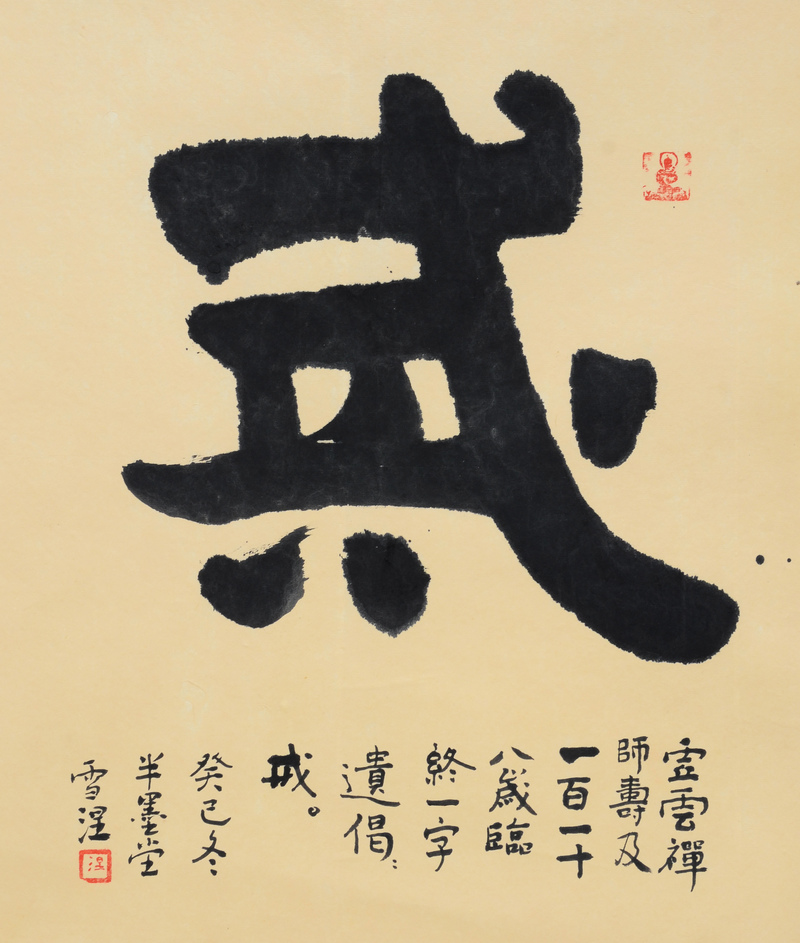 戒
虛雲禪
師壽及
一百一十
八歲臨
終一字
遺偈：
戒。
癸巳冬
半墨堂
雪涅